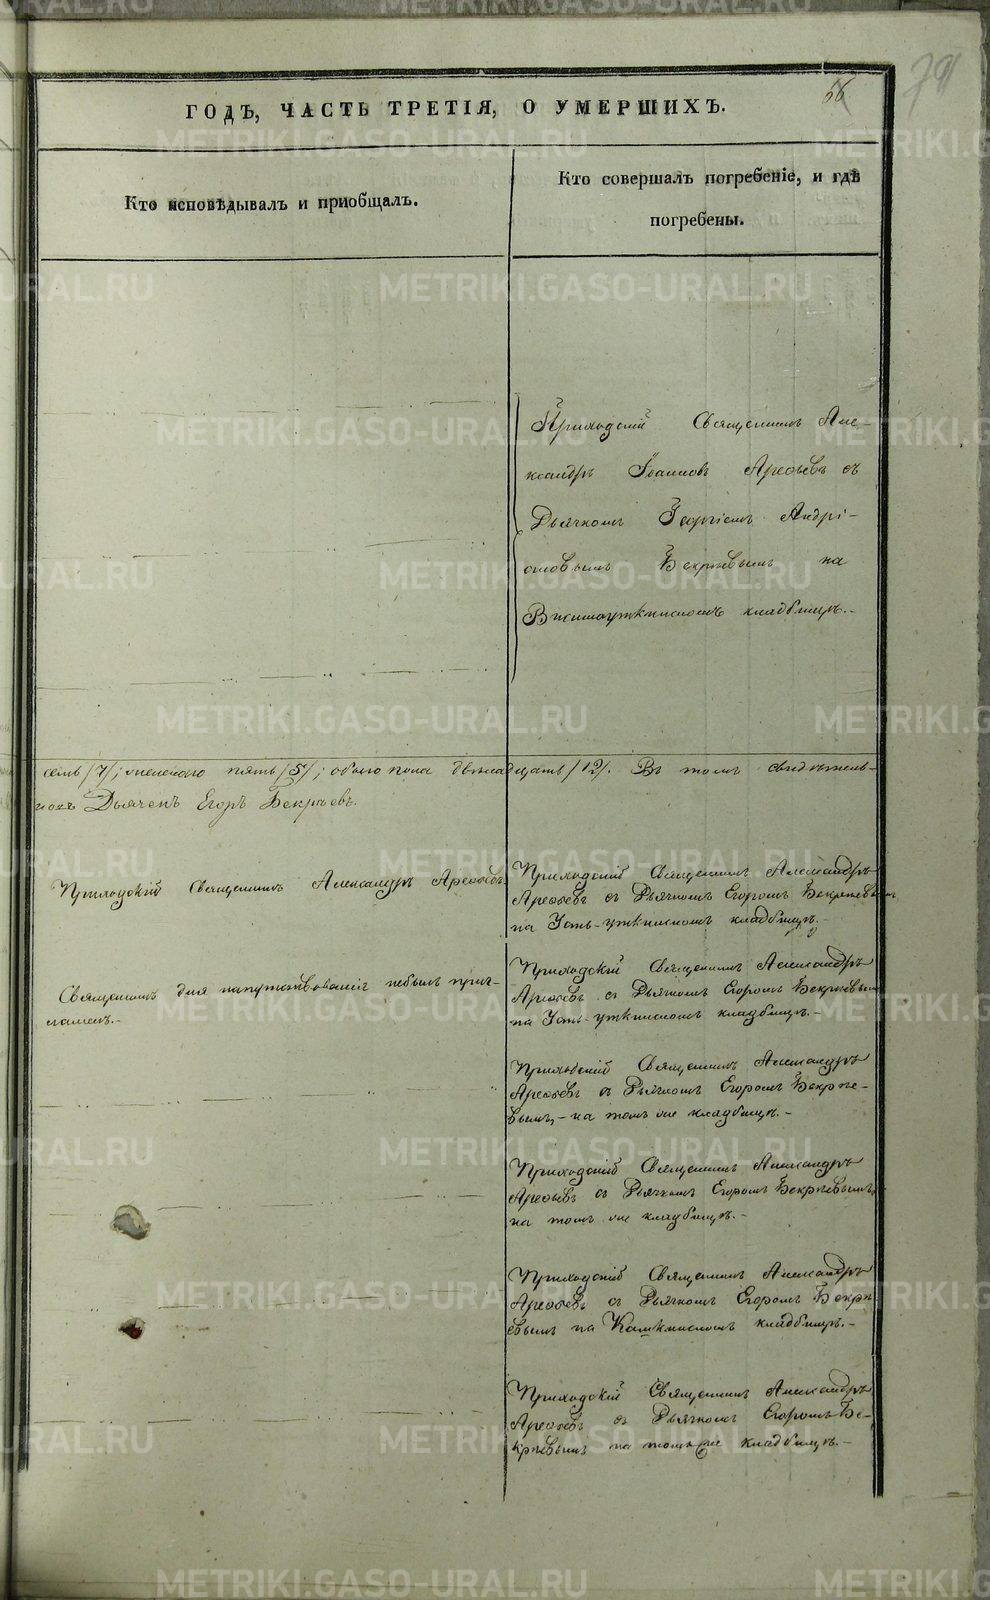 66
79
ГОДЪ, ЧАСТЬ ТРЕТІЯ, О УМЕРШИХЪ.
Кто исповѣдывалъ и пріобщалъ.
Кто совершалъ погребеніе, и гдѣ
погребены.
Приходскій Священникъ Але-
ксандръ Іоанновъ Арефьевъ съ
Дьячкомъ Георгіемъ Андрі-
ановымъ Бекряевымъ на
кладбищѣ.-
семь /7/; женскаго пять /5/; обоего пола двѣнадцать /12/. Въ томъ свидѣтель-
Дьячекъ Егоръ Бекряевъ.
Приходскій Священникъ Александръ Арефьевъ
Приходскій Священникъ Александръ
Арефьевъ съ Дьячкомъ Егоромъ Бекряевымъ
на Усть-уткинскомъ кладбищѣ.-
Священникъ для напутствованія небылъ приг-
лашенъ.-
Приходскій Священникъ Александръ
Арефьевъ съ Дьячкомъ Егоромъ Бекряевымъ
на Усть-уткинскомъ кладбищѣ.-
Приходскій Священникъ Александръ
Арефьевъ съ Дьячкомъ Егоромъ Бекряе-
вымъ,- на томъ же кладбищѣ.-
Приходскій Священникъ Александръ
Арефьевъ съ Дьячкомъ Егоромъ Бекряевымъ,
на томъ же кладбищѣ.-
Приходскій Священникъ Александръ
Арефьевъ съ Дьячкомъ Егоромъ Бекря
евымъ на кладбищѣ.-
Приходскій Священникъ Александръ
Арефьевъ съ Дьячкомъ Егоромъ Бе-
кряевымъ на томъ же кладбищѣ.-
METRIKI.GASO-URAL.RU